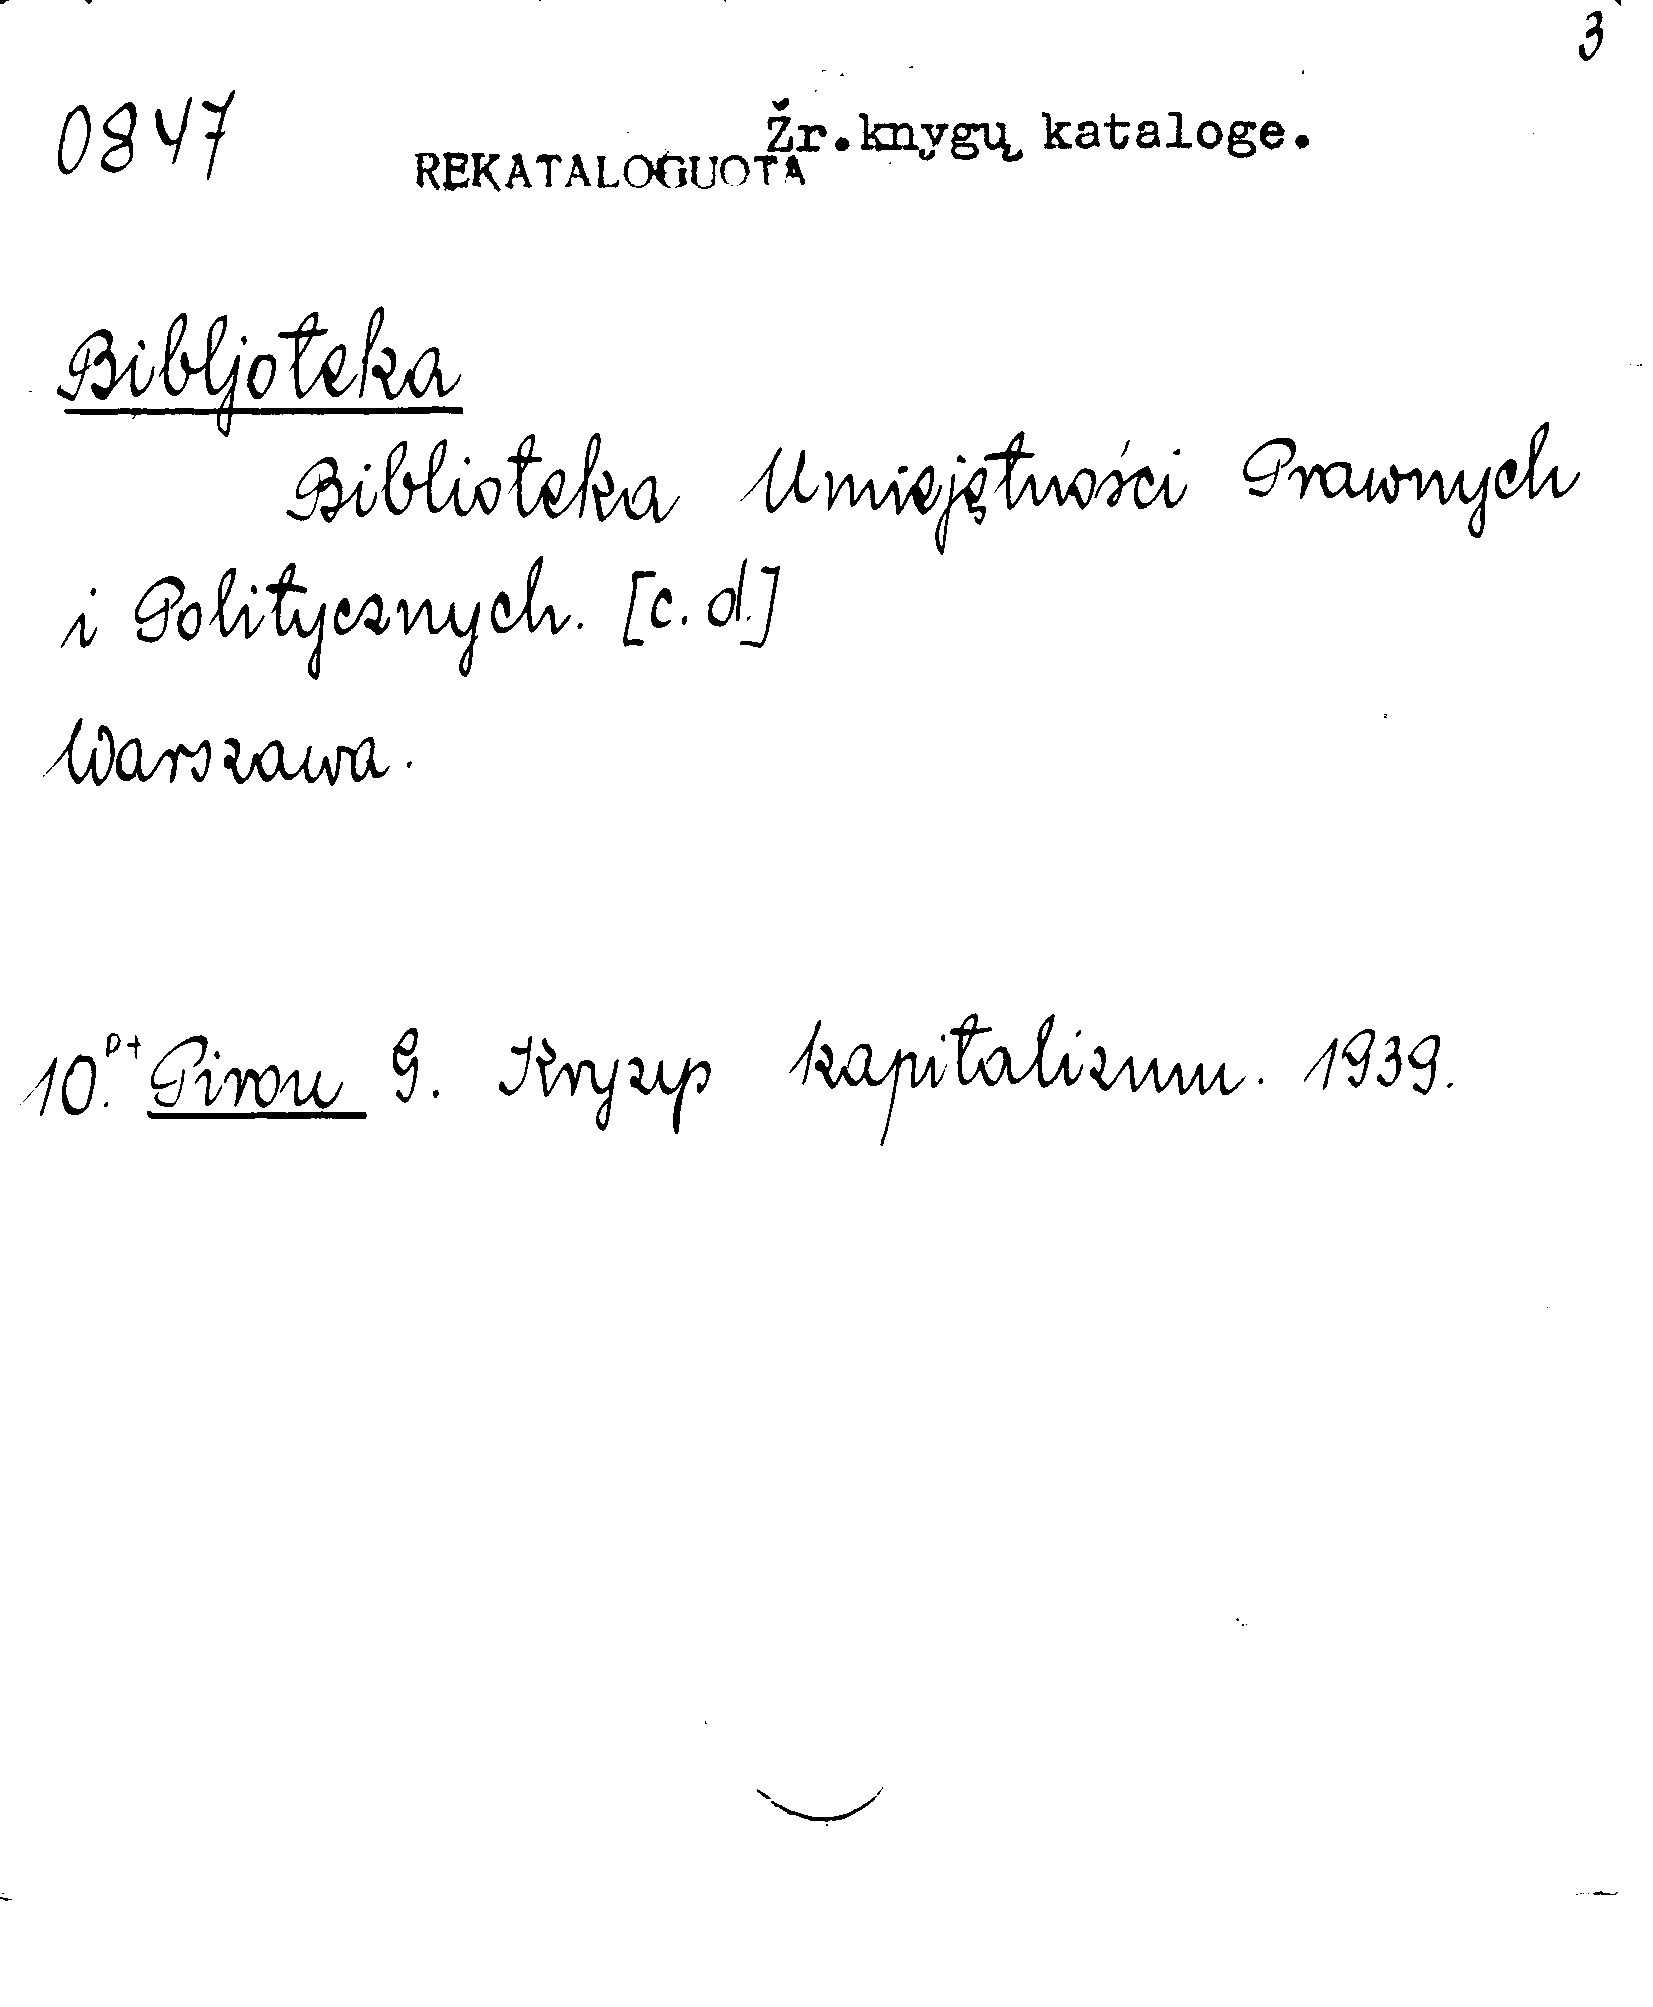 3
0847
Žr.knygų kataloge.
REKATALOGUOTA
Bibljoteka
Biblioteka Umiejętności Prawnych
i Politycznych. [c.d.]
Warszawa.
10. pt Pirou G. Kryzys kapitalizmu. 1939.